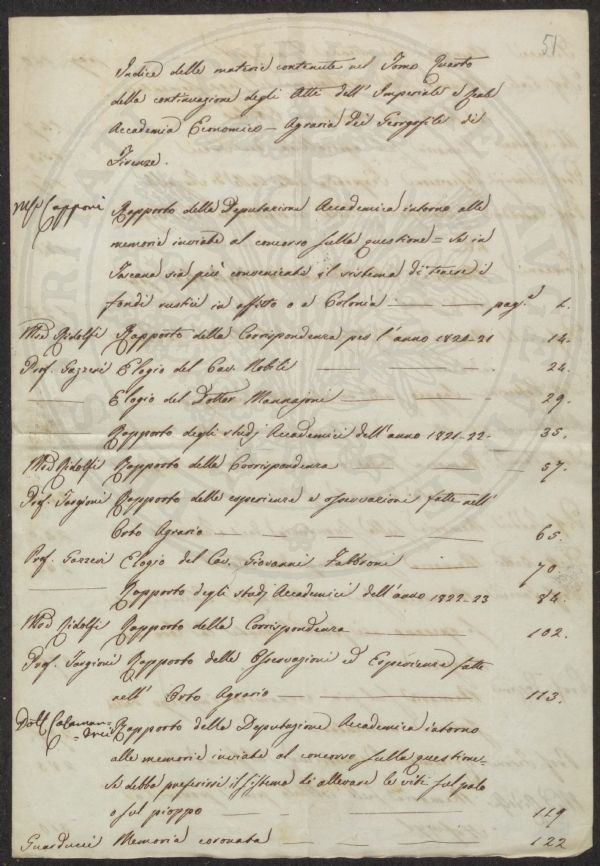 51
Indice delle materie contenute nel Tomo Quarto
della continuazione degli Atti dell' Imperiale e Reale
Accademia Economico-Agraria dei Georgofili di
Firenze.
Capponi Rapporto della Deputazione Accademica intorno alle
memorie inviate al concorso sulla questione = Se in
Toscana sia più conveniente il sistema di tenere i
fondi rustici in affitto o a Colonia — — pag.e 1.
Ridolfi Rapporto della Corrispondenza per l'anno 1820-21 14.
Prof. Gazzeri Elogio del Cav. Nobili — — — 24.
— Elogio del Dottor Mannajoni — — 29.
Rapporto degli studj Accademici dell'anno 1821-22- 35.
Ridolfi Rapporto della Corrispondenza — — — 57.
Prof. Targioni Rapporto delle esperienze e osservazioni fatte nell'
Orto Agrario — — — — 65.
Prof. Gazzeri Elogio del Cav. Giovanni Fabbroni — — 70.
— Rapporto degli studj Accademici dell'anno 1822-23 84.
Ridolfi Rapporto della Corrispondenza — — 102.
Prof. Targioni Rapporto delle Osservazioni ed Esperienze fatte
nell' Orto Agrario — — — — 113.
Dott. Calaman-
-drei Rapporto della Deputazione Accademica intorno
alle memorie inviate al concorso sulla questione=
Se debba preferirsi il sistema di allevare le viti sul palo
o sul pioppo — — — — 119
Guarducci Memoria coronata — — — 122